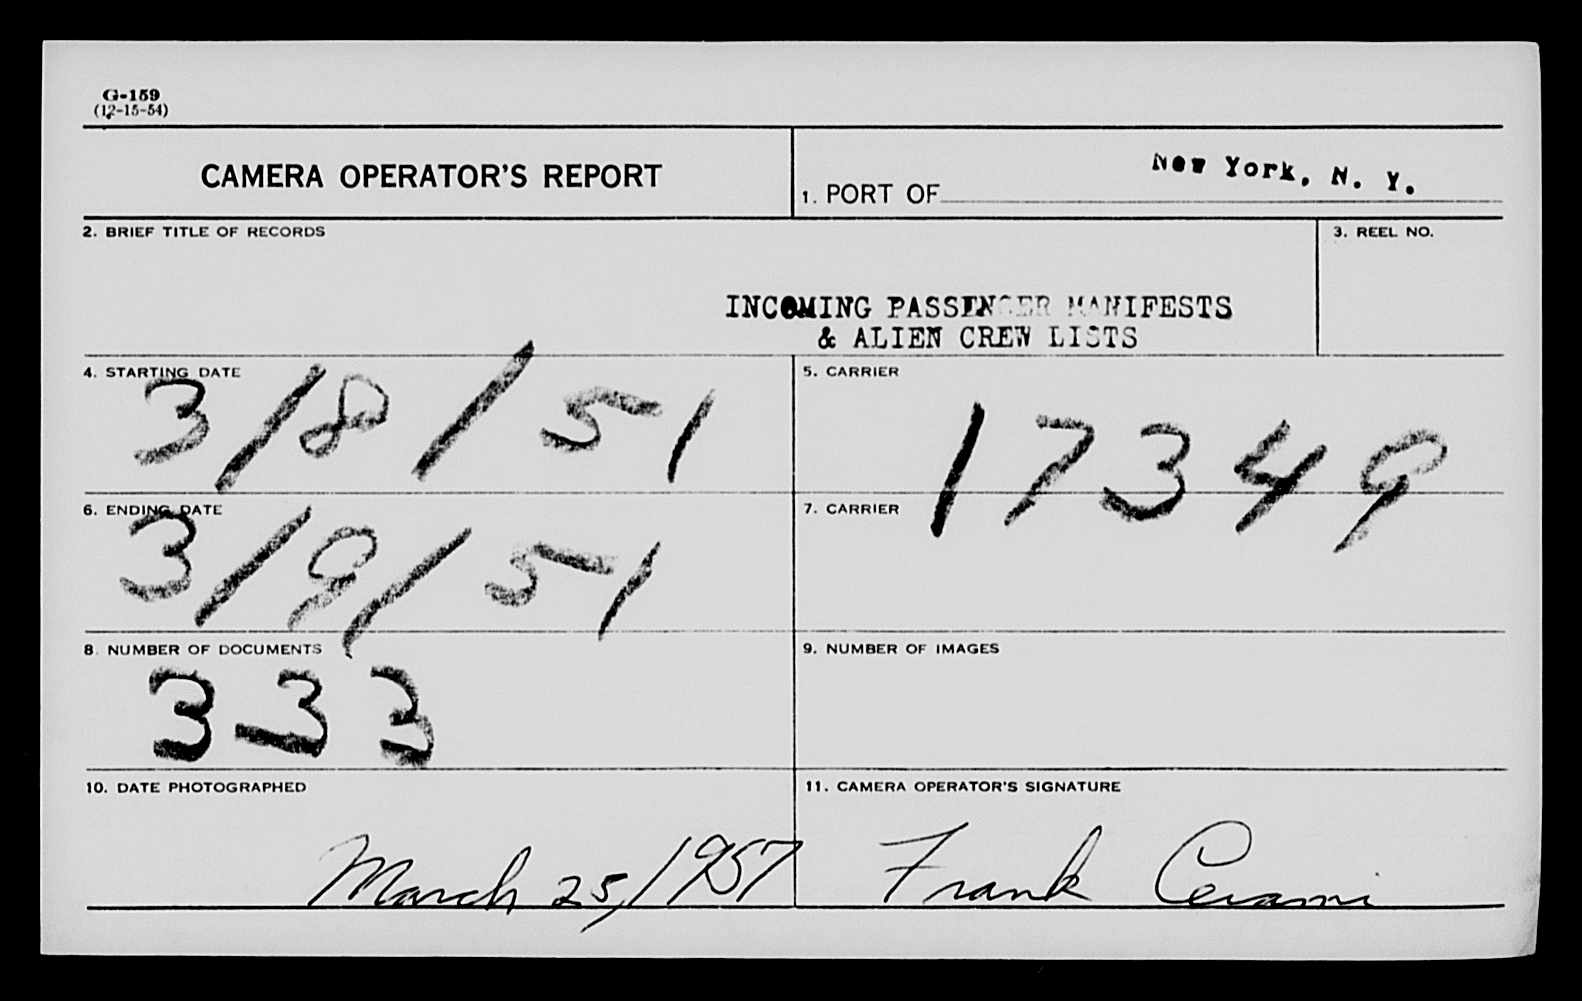 G-159
(12-15-54)
CAMERA OPERATOR'S REPORT
1. PORT OF New York, N. Y.
2. BRIEF TITLE OF RECORDS
INCOMING PASSENGER MANIFESTS
& ALIEN CREW LISTS
3. REEL NO.
4. STARTING DATE
3/8/51
5. CARRIER
17349
6. ENDING DATE
3/9/51
7. CARRIER
8. NUMBER OF DOCUMENTS
333
9. NUMBER OF IMAGES
10. DATE PHOTOGRAPHED
March 25, 1957
11. CAMERA OPERATOR'S SIGNATURE
Frank Cerami